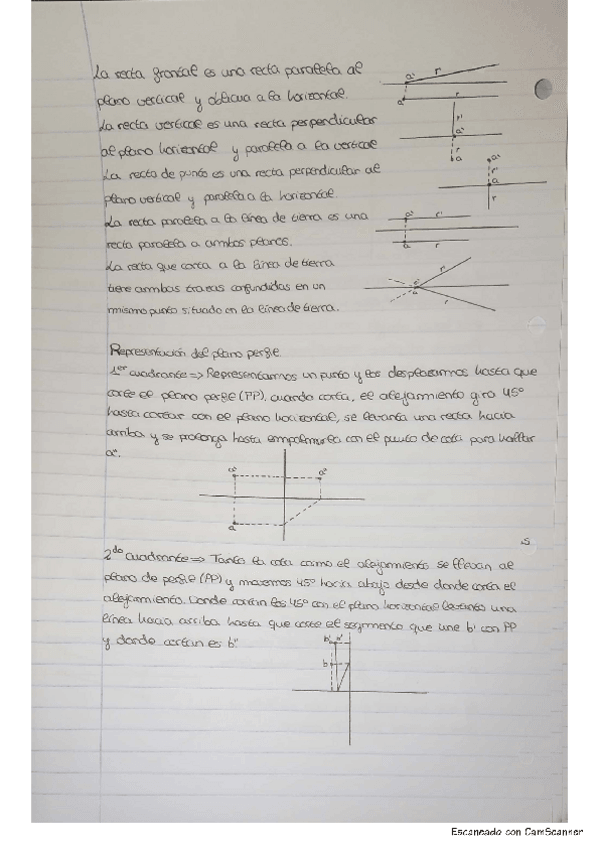 La recta frontal es una recta paralela al
plano vertical y oblicua a la horizontal.
La recta vertical es una recta perpendicular
al plano horizontal y paralela a la vertical
La recta de punto es una recta perpendicular al
plano vertical y paralela a la horizontal.
La recta paralela a la línea de tierra es una
recta paralela a ambos planos.
La recta que corta a la línea de tierra
tiene ambas trazas confundidas en un
mismo punto situado en la línea de tierra.
Representación del plano perfil.
1er cuadrante => Representamos un punto y los desplazamos hasta que
corte el plano perfil (PP), cuando corta, el alejamiento gira 45º
hasta cortar con el plano horizontal, se levanta una recta hacia
arriba y se prolonga hasta empalmarla con el punto de cota para hallar
a".
a' a"
a
2do cuadrante => Tanto la cota como el alejamiento se llevan al
plano de perfil (PP) y hacemos 45º hacia abajo desde donde corta el
alejamiento. Donde cortan los 45º con el plano horizontal levanto una
línea hacia arriba hasta que corte el segmento que une b' con PP
y donde cortan es b"
b' b"
b
Escaneado con CamScanner